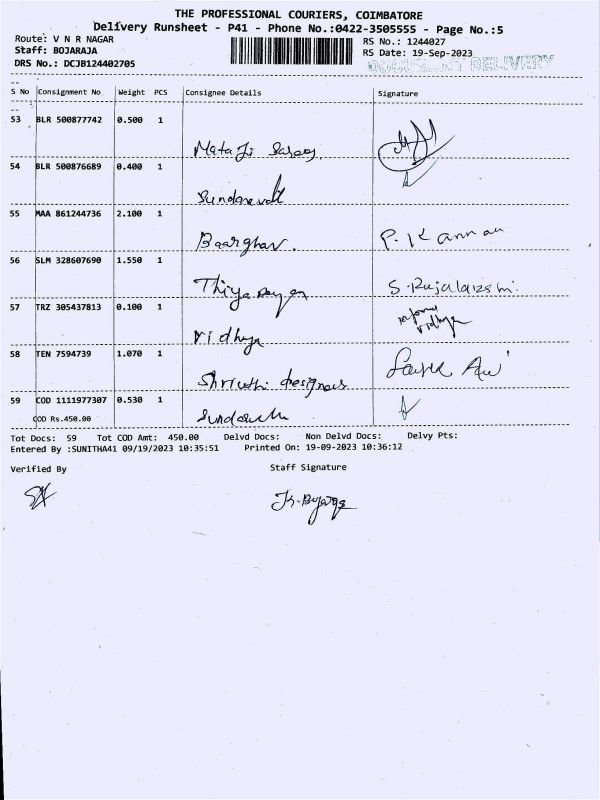 THE PROFESSIONAL COURIERS, COIMBATORE
Delivery Runsheet - P41 - Phone No.:0422-3505555 - Page No.:5
Route: V N R NAGAR
RS No.: 1244027
Staff: BOJARAJA
RS Date: 19-Sep-2023
DRS No.: DCJB124402705
DELIVERY
S No Consignment No Weight PCS Consignee Details Signature
53 BLR 500877742 0.500 1
Mataji Sarees
54 BLR 500876689 0.400 1
55 MAA 861244736 2.100 1
Baarghav.
P. Kannan
56 SLM 328607690 1.550 1
Thiyagarayan
S. Rajalakshmi
57 TRZ 305437813 0.100 1
vidhya
vidhya
58 TEN 7594739 1.070 1
Shriuthi designous
59 COD 1111977307 0.530 1
COD Rs.450.00
Tot Docs: 59 Tot COD Amt: 450.00 Delvd Docs: Non Delvd Docs: Delvy Pts:
Entered By :SUNITHA41 09/19/2023 10:35:51 Printed On: 19-09-2023 10:36:12
Verified By
Staff Signature